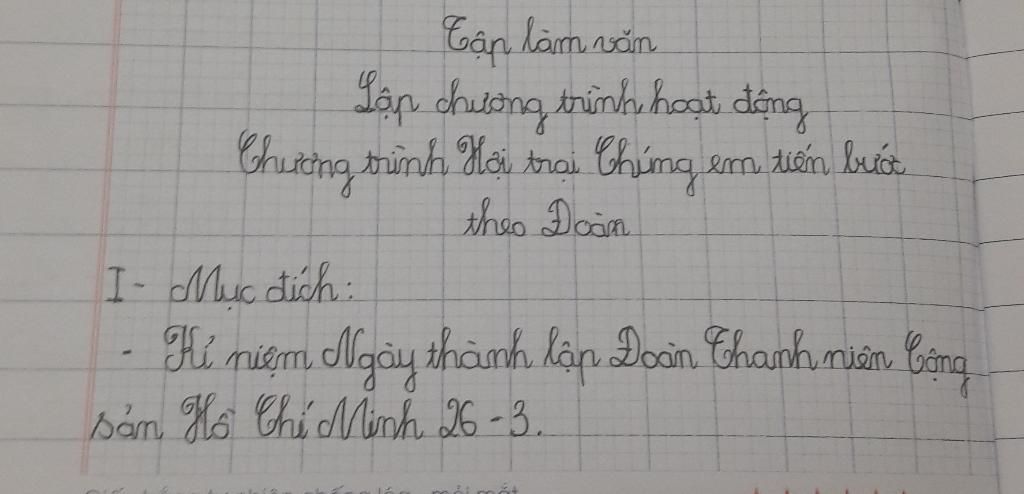 Tập làm văn
Lập chương trình hoạt động
Chương trình Hội trại Chúng em tiến bước
theo Đoàn
I - Mục đích:
- Kỉ niệm Ngày thành lập Đoàn Thanh niên Cộng
sản Hồ Chí Minh 26-3.